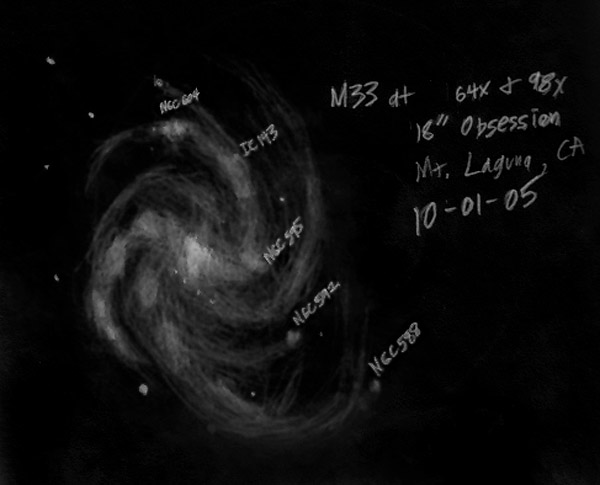 M33 at 64X & 98X
18" Obsession
Mt. Laguna, CA
10-01-05
NGC 604
IC 143
NGC 595
NGC 592
NGC 588